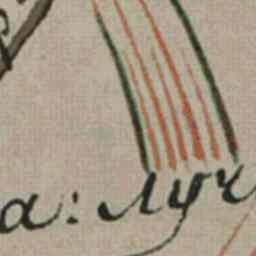 а: луч